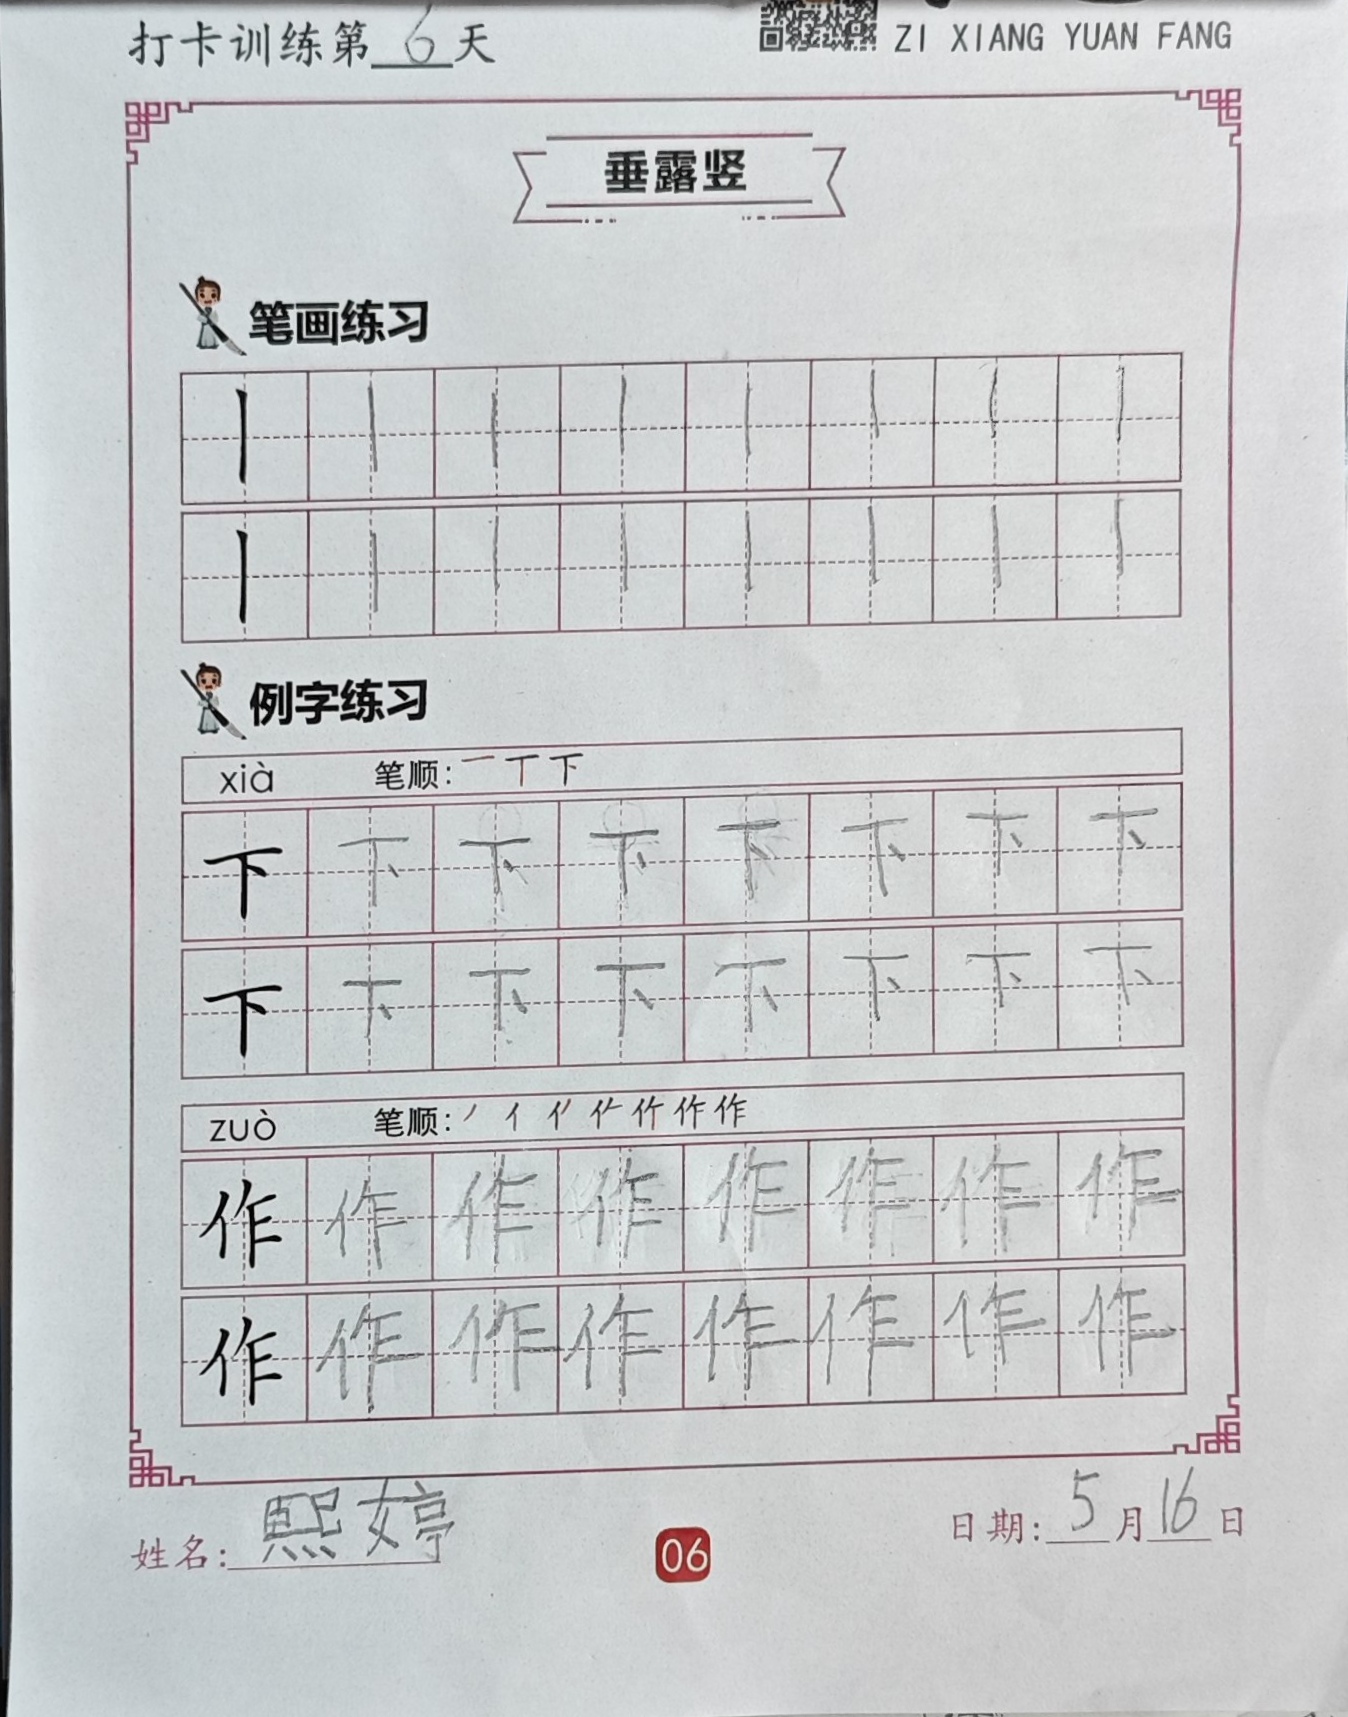 打卡训练第6天 ZI XIANG YUAN FANG
垂露竖
笔画练习
丨丨丨丨丨丨丨丨
丨丨丨丨丨丨丨丨
例字练习
xià 笔顺: 一 丅 下
下下下下下下下下
下下下下下下下下
zuò 笔顺: 丿 亻 作
作作作作作作作作
作作作作作作作作
姓名: 熙婷 06 日期: 5月16日